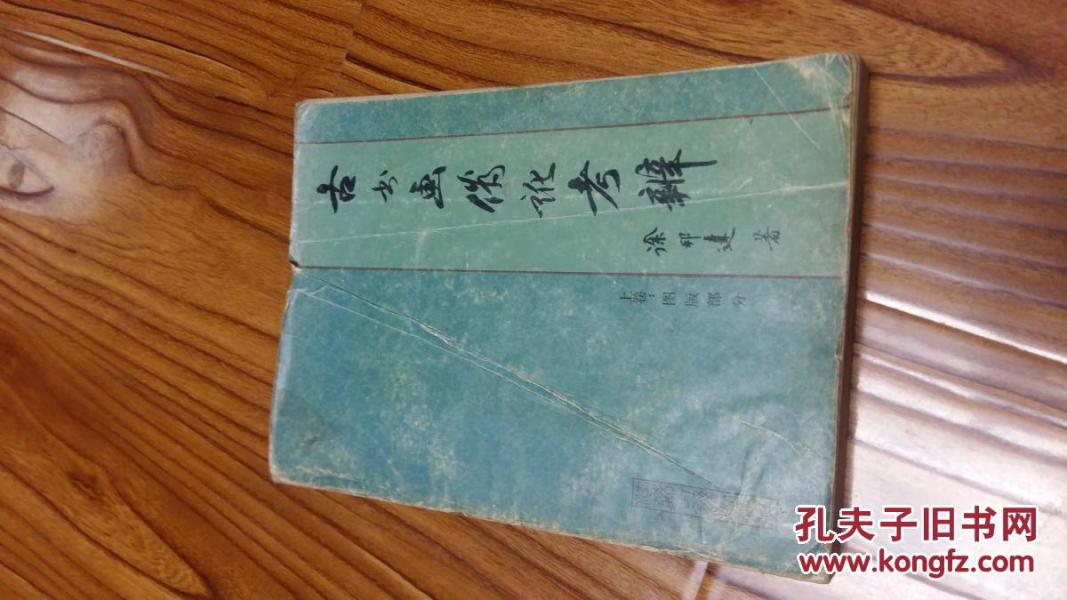 古书画伪讹考辨
徐邦达 著
上卡：图版部分
孔夫子旧书网
www.kongfz.com